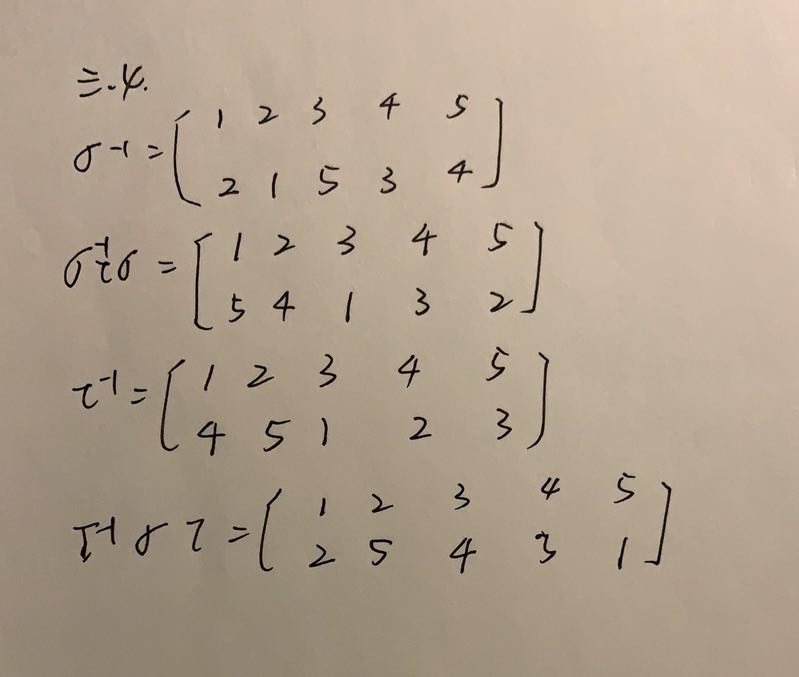 三.4.
σ⁻¹ = [ 1 2 3 4 5
2 1 5 3 4 ]
σ⁻¹τσ = [ 1 2 3 4 5
5 4 1 3 2 ]
τ⁻¹ = [ 1 2 3 4 5
4 5 1 2 3 ]
τ⁻¹στ = [ 1 2 3 4 5
2 5 4 3 1 ]